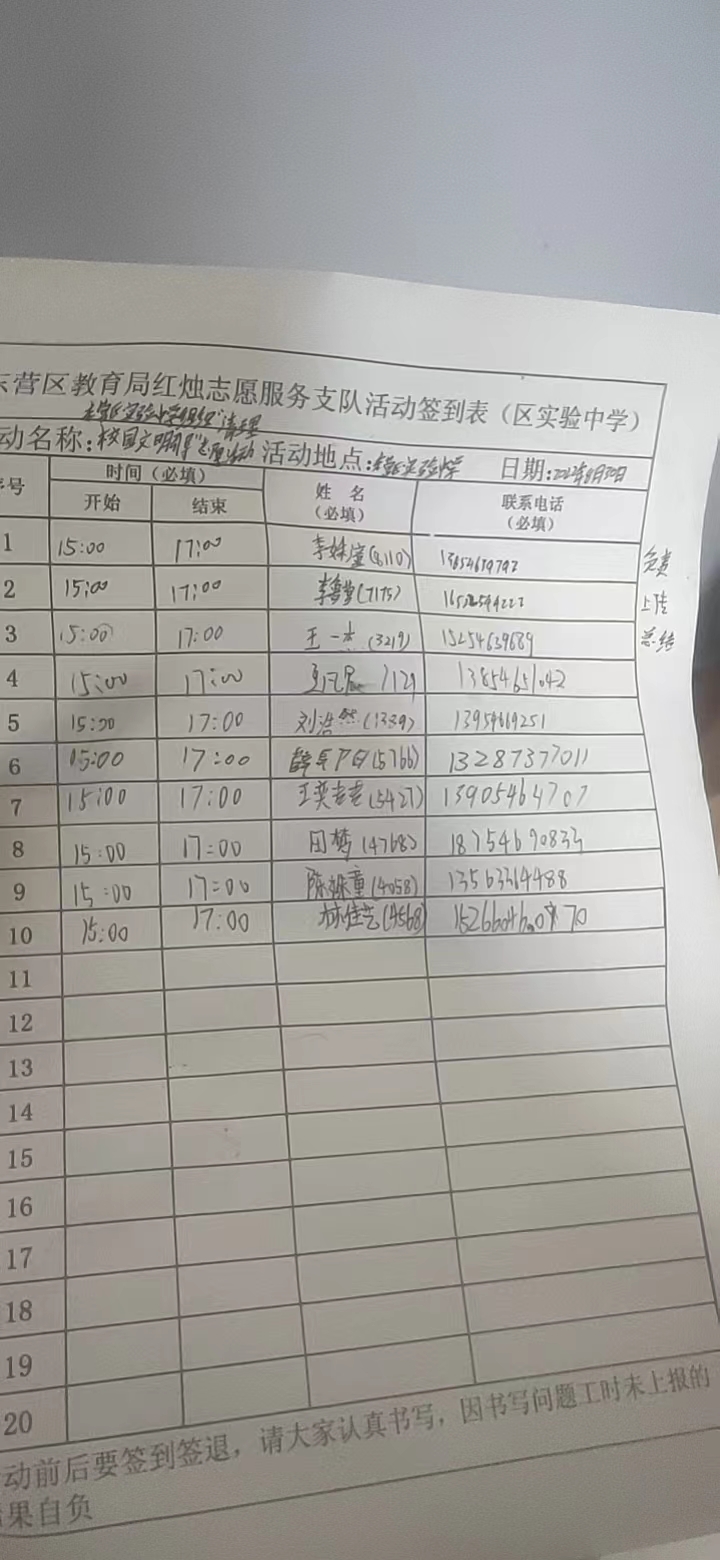 东营区教育局红烛志愿服务支队活动签到表（区实验中学）
清理
动名称：校园文明 志愿活动 活动地点： 实验中学 日期：
序号 时间（必填） 姓名（必填） 联系电话（必填）
开始 结束
1 15:00 17:00 (8110) 负责
2 15:00 17:00 (7175) 上传
3 15:00 17:00 王一杰(3219) 15254639689 总结
4 15:00 17:00 7129 13854651042
5 15:00 17:00 刘浩然(1339) 13954669251
6 15:00 17:00 (5766) 13287377011
7 15:00 17:00 (5427) 13905464707
8 15:00 17:00 田梦(4768) 18754690833
9 15:00 17:00 (4058) 13563364488
10 15:00 17:00 林佳艺(4568)
11
12
13
14
15
16
17
18
19
20
动前后要签到签退，请大家认真书写，因书写问题工时未上报的
果自负